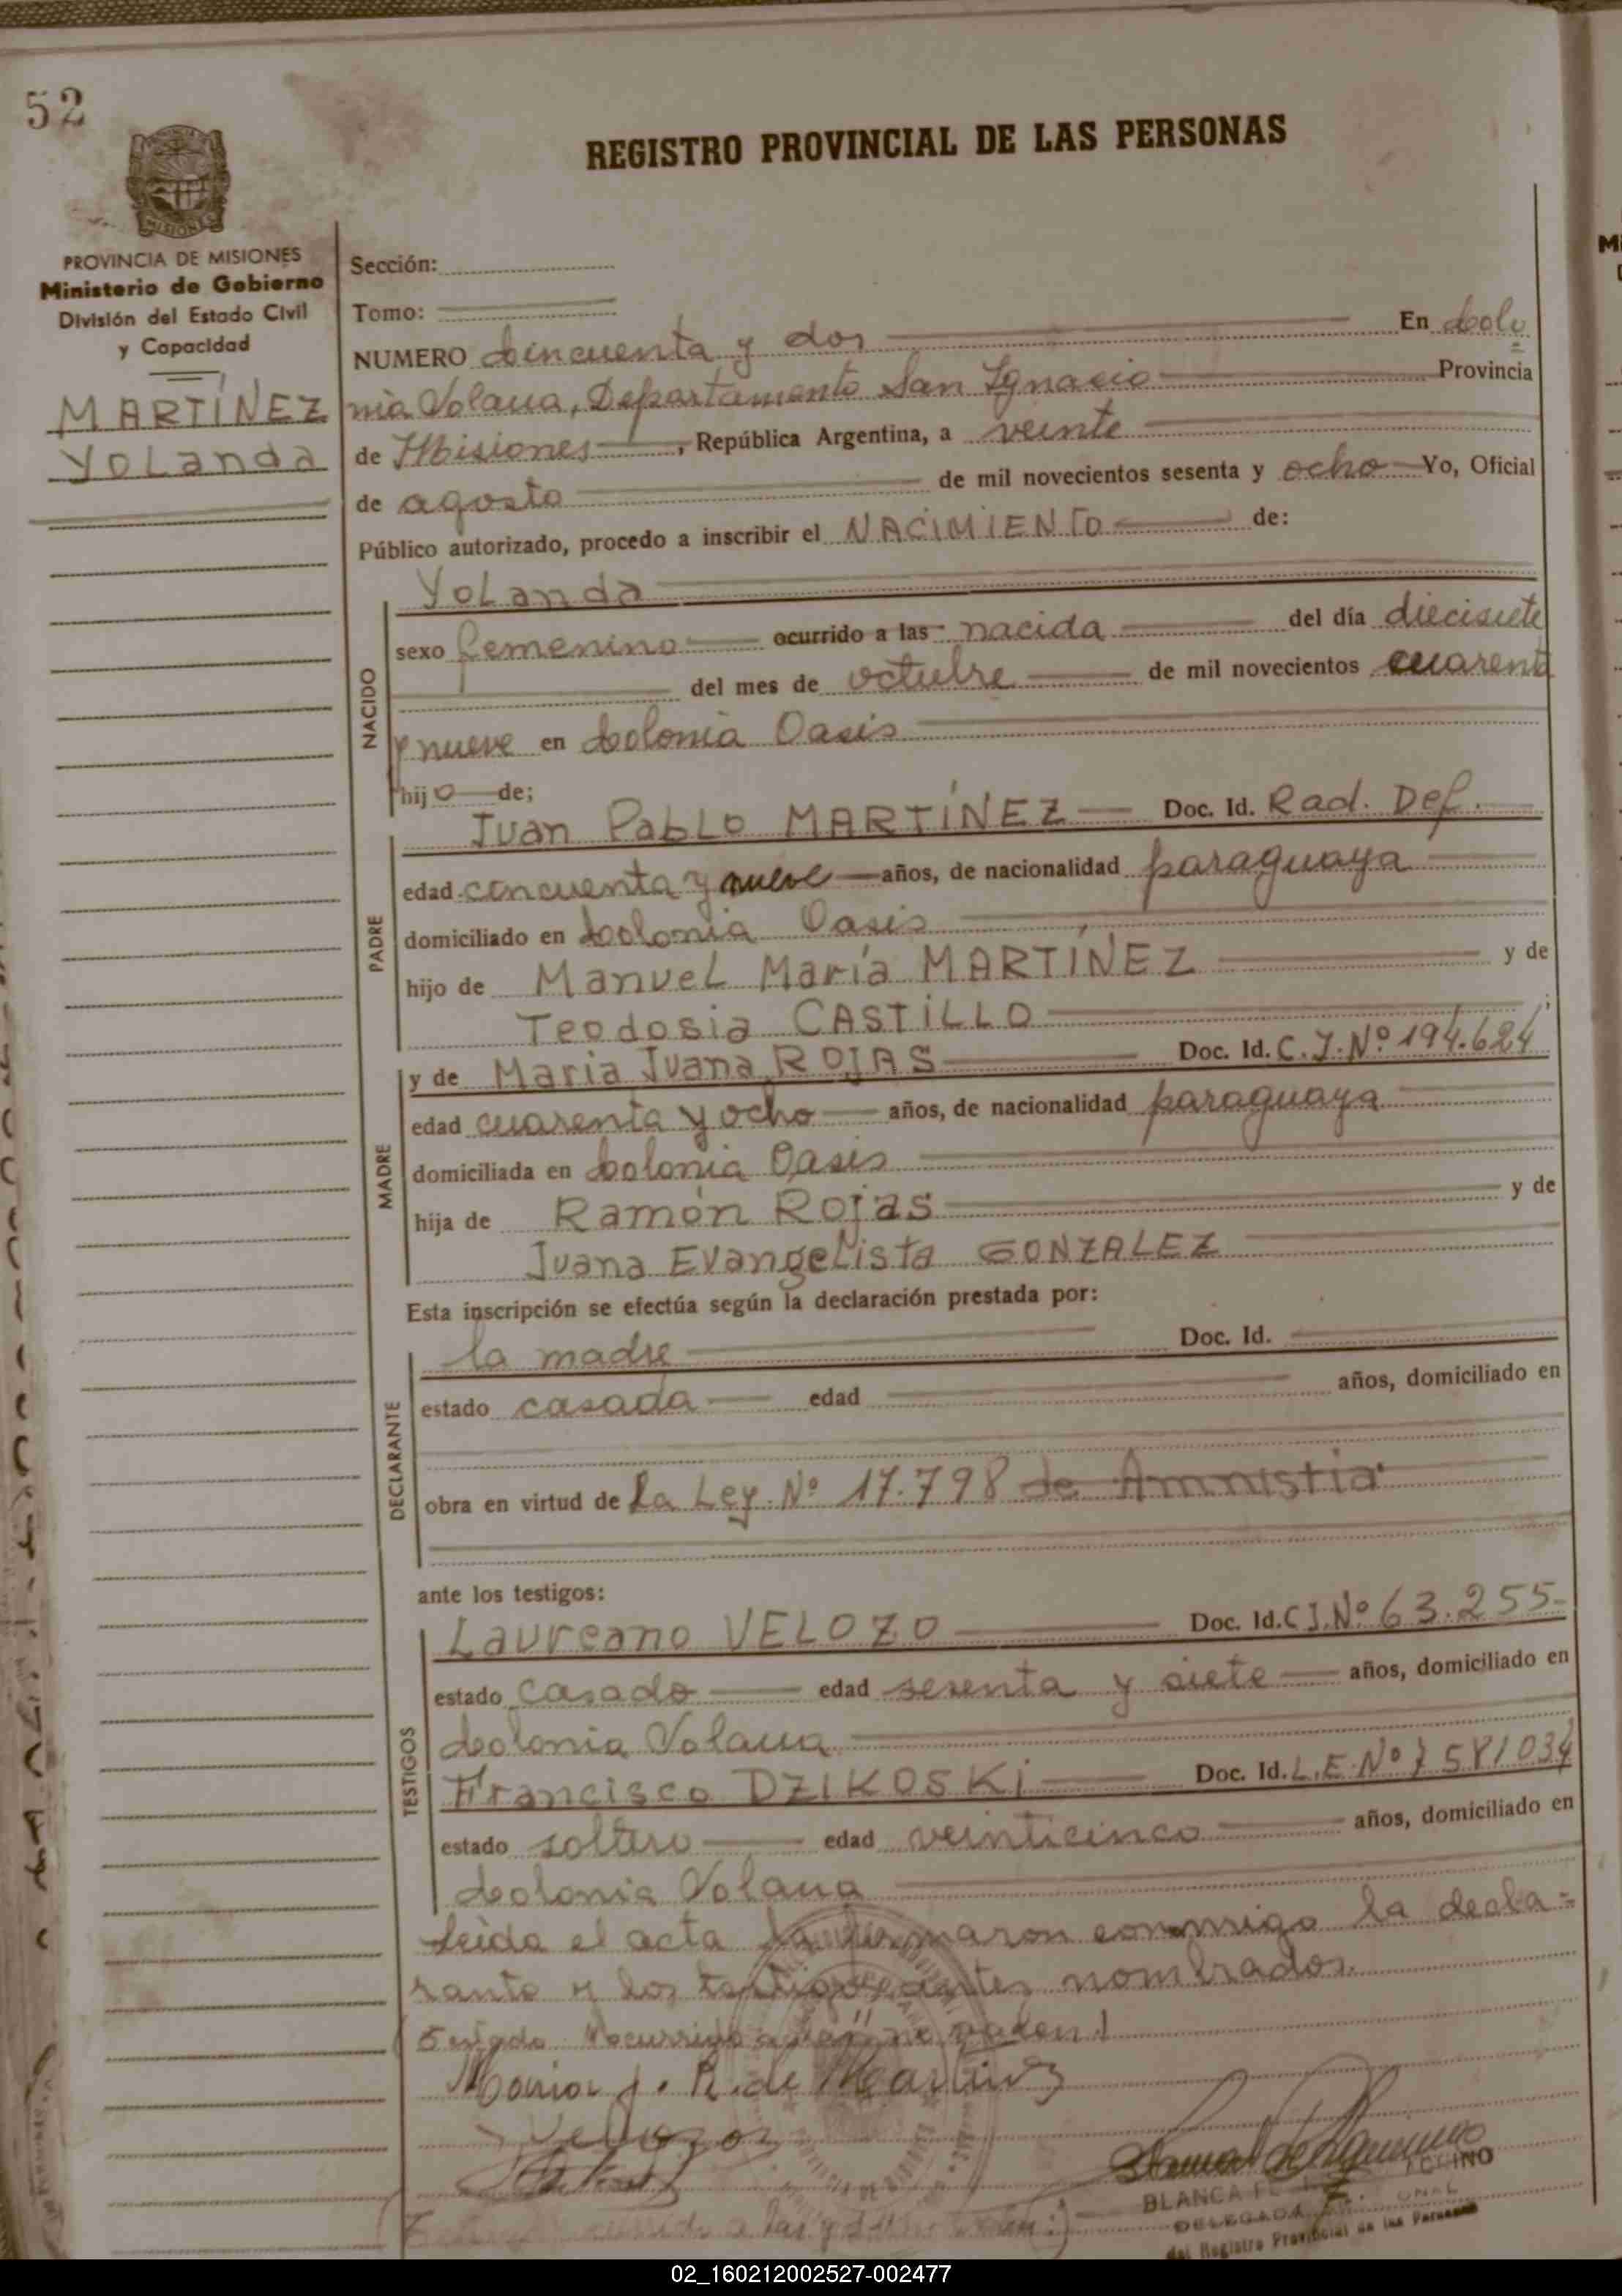 52
REGISTRO PROVINCIAL DE LAS PERSONAS
MISIONES
PROVINCIA DE MISIONES
Ministerio de Gobierno
División del Estado Civil
y Capacidad
MARTÍNEZ
Yolanda
Sección:
Tomo:
NUMERO Cincuenta y dos En Colo
nia Polana, Departamento San Ignacio Provincia
de Misiones, República Argentina, a veinte
de agosto de mil novecientos sesenta y ocho Yo, Oficial
Público autorizado, procedo a inscribir el NACIMIENTO de:
NACIDO
Yolanda
sexo femenino ocurrido a las nacida del día diecisiete
del mes de octubre de mil novecientos cuarenta
y nueve en Colonia Oasis
hijo de;
PADRE
Juan Pablo MARTÍNEZ Doc. Id. Rad. Def.
edad cincuenta y nueve años, de nacionalidad paraguaya
domiciliado en Colonia Oasis
hijo de Manuel María MARTÍNEZ y de
Teodosia CASTILLO;
MADRE
y de Maria Juana ROJAS Doc. Id. C. I. Nº 194.624
edad cuarenta y ocho años, de nacionalidad paraguaya
domiciliada en Colonia Oasis
hija de Ramón Rojas y de
Juana Evangelista GONZALEZ
Esta inscripción se efectúa según la declaración prestada por:
DECLARANTE
la madre Doc. Id.
estado casada edad años, domiciliado en
obra en virtud de La Ley Nº 17.798 de Amnistia
ante los testigos:
TESTIGOS
Laureano VELOZO Doc. Id. C I. Nº 63.255-
estado casado edad sesenta y siete años, domiciliado en
Colonia Polana
Francisco DZIKOSKI Doc. Id. L.E. Nº 7581034
estado soltero edad veinticinco años, domiciliado en
Colonia Polana
Leída el acta la firmaron conmigo la decla=
rante y los testigos antes nombrados.
Maria J. R. de Martinez
Velozo
BLANCA
DELEGADA
del Registro Provincial de las Personas
02_160212002527-002477